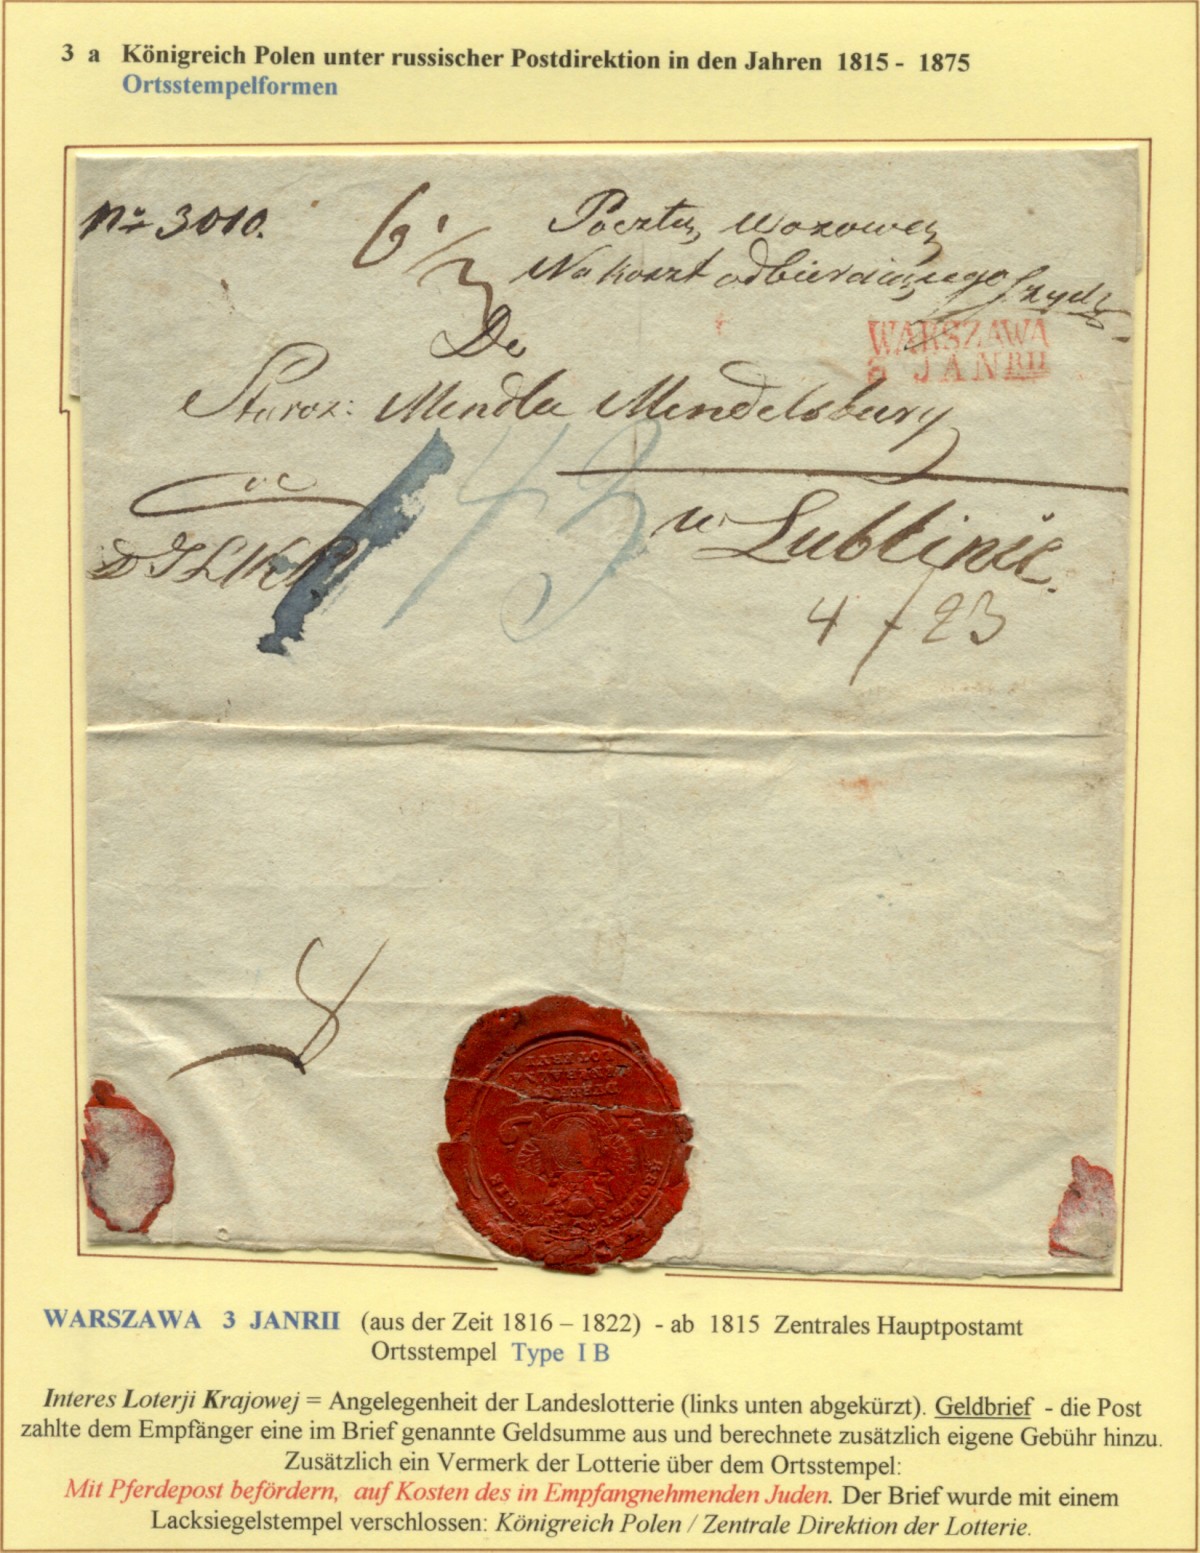 3 a Königreich Polen unter russischer Postdirektion in den Jahren 1815 - 1875
Ortsstempelformen
No 3010.
6 1/3
Pocztą wozową
Na koszt odbierającego Żyda
Do
Staroz: Mendla Mendelsburg
w Lublinie.
WARSZAWA
3 JANRII
43
4 / 23
WARSZAWA 3 JANRII (aus der Zeit 1816 – 1822) - ab 1815 Zentrales Hauptpostamt
Ortsstempel Type I B
Interes Loterji Krajowej = Angelegenheit der Landeslotterie (links unten abgekürzt). Geldbrief - die Post
zahlte dem Empfänger eine im Brief genannte Geldsumme aus und berechnete zusätzlich eigene Gebühr hinzu.
Zusätzlich ein Vermerk der Lotterie über dem Ortsstempel:
Mit Pferdepost befördern, auf Kosten des in Empfangnehmenden Juden. Der Brief wurde mit einem
Lacksiegelstempel verschlossen: Königreich Polen / Zentrale Direktion der Lotterie.